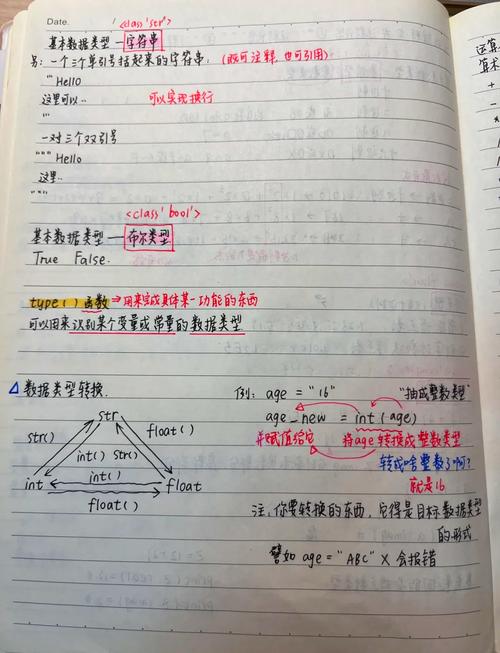 Date.
<class'str'>
基本数据类型—字符串
另：一个三个单引号括起来的字符串：(既可注释，也可引用)
'''Hello
这里可以.. 可以实现换行
'''
一对三个双引号
"""Hello
这里..
"""
<class'bool'>
基本数据类型—布尔类型
True False.
type()函数⇒用来完成具体某一功能的东西
可以用来识别某个变量或常量的数据类型
△数据类型转换.
str
str()
float()
int() str()
int
int()
float
float()
例: age = "16" "抽成整数类型"
age_new = int(age)
并赋值给它 将age转换成整数类型
转成啥整数了啊?
就是16
注,你要转换的东西，它得是目标数据类型
的形式
譬如 age = "ABC" X 会报错
运算
算术
+
-
*